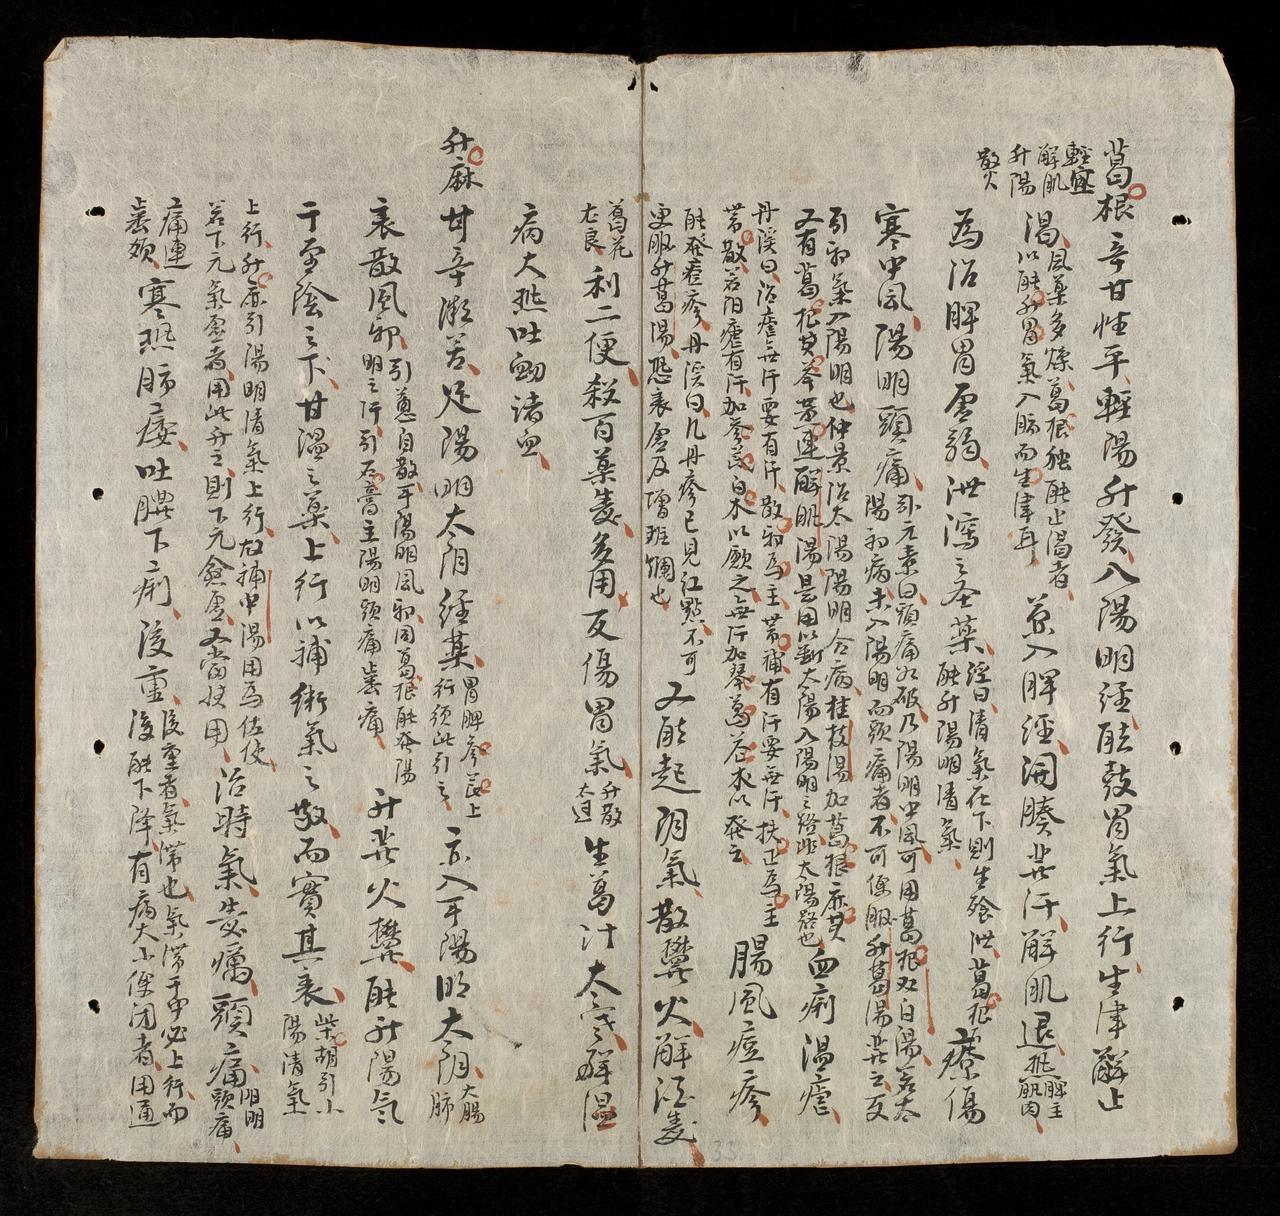 葛根 辛甘性平輕陽升發入陽明經能鼓胃氣上行生津解止
輕宣解肌升陽散火
渴風藥多燥葛根独能止渴者以能升胃氣入肺而生津耳兼入脾經開腠发汗解肌退热脾主肌肉
為治脾胃虛弱泄瀉之圣藥经曰清氣在下則生飧泄葛根能升陽明清氣療傷
寒中風陽明頭痛元素曰頭痛如破乃陽明中風可用葛根葱白湯若太陽初病未入陽明而頭痛者不可便服升葛湯发之反
引邪氣入陽明也仲景治太陽陽明合病桂枝湯加葛根麻黄又有葛根黄芩黄連解肌湯是用以斷太陽入陽明之路非太陽藥也血痢温瘧
丹溪曰治瘧無汗要有汗散邪為主带補有汗要無汗扶正為主带散若阳瘧有汗加参芪白术以歛之無汗加芩葛苍术以發之腸風痘疹
能發痘疹丹溪曰凡丹疹已見红點不可更服升葛湯恐表虛反增斑爛也又能起阴氣散欝火解酒毒
葛花尤良利二便殺百藥毒多用反傷胃氣升散太过生葛汁大寒解温
病大热吐衄诸血
升麻 甘辛微苦足陽明太阴经藥胃脾参芪上行须此引之亦入手陽明太阴大腸肺
表散風邪引葱白散手陽明風邪同葛根能發陽明之汗引石膏主陽明頭痛齒痛升发火欝能升陽氣
于至陰之下甘温之藥上行以補衛氣之散而實其表柴胡引少陽清氣
上行升麻引陽明清氣上行故補中湯用為佐使若下元氣虛者用此升之則下元愈虛又當慎用治時氣毒癘頭痛陽明頭痛
痛連齒頰寒热肺痿吐膿下痢後重後重者氣滞也氣滞于中必上行而後能下降有病大小便闭者用通